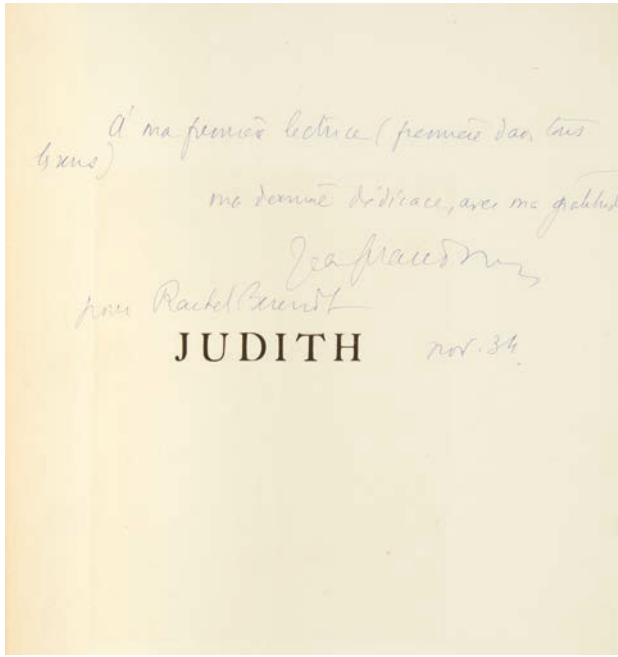 A ma première lectrice (première dans tous
les sens)
ma dernière dédicace, avec ma gratitude
Jean Giraudoux
pour Rachel Berendt
JUDITH nov. 34